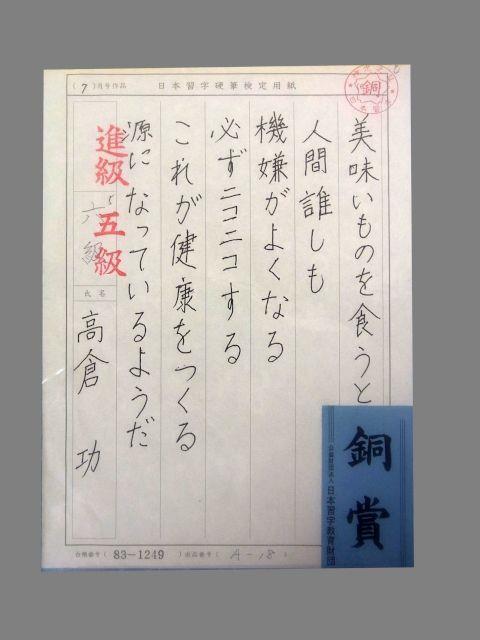 (7)月号作品 日本習字硬筆検定用紙
銅
美味いものを食うと
人間誰しも
機嫌がよくなる
必ずニコニコする
これが健康をつくる
源になっているようだ
進級 五級
六級
氏名
高倉 功
銅賞
公益財団法人 日本習字教育財団
合格番号( 83-1249 )出品番号( A-18 )